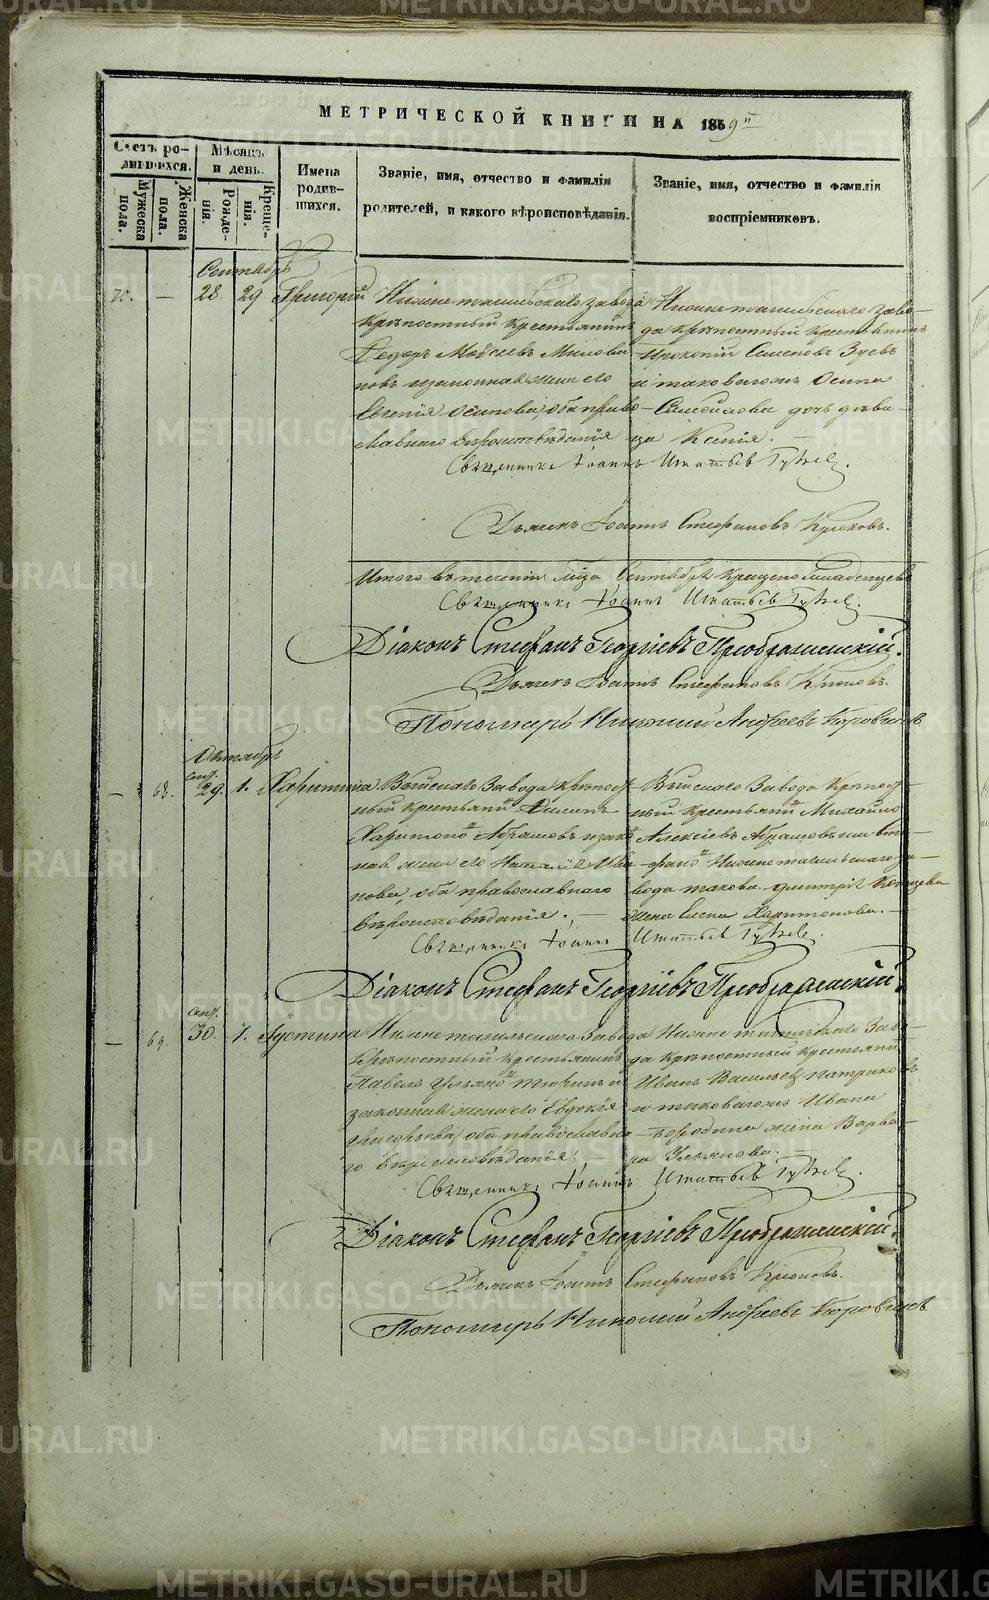 МЕТРИЧЕСКОЙ КНИГИ НА 1859й
Счетъ родившихся.
Мужеска пола.
Женска пола.
Мѣсяцъ и день.
Рожденія.
Крещенія.
Имена родившихся.
Званіе, имя, отчество и фамилія родителей, и какого вѣроисповѣданія.
Званіе, имя, отчество и фамилія воспріемниковъ.
Сентябрь
70. — 28 29 Григорій
Нижнетагильскаго завода
крѣпостный крестьянинъ
Ѳедоръ Моисеевъ Милова-
новъ и законная жена его
Евгенія Осипова, оба право-
славнаго вѣроисповѣданія
Нижнетагильскаго заво-
да крѣпостный крестьянинъ
Прокопій Семеновъ Зуевъ
и таковагожъ Осипа
Самойлова дочь дѣви-
ца Ксенія. —
Священникъ Іоаннъ Игнатьевъ
Дьячекъ Іоаннъ Стефановъ Крюковъ.
Итого въ теченіи м-ца Сентября крещено младенцевъ
Священникъ Іоаннъ Игнатьевъ
Діаконъ Стефанъ Георгіевъ Преображенскій.
Дьячекъ Іоаннъ Стефановъ Крюковъ.
Пономарь Николай Андреевъ
Октябрь
— 68. сент. 29. 1. Харитина
Выйскаго Завода крѣпост-
ный крестьянин
Харитоно Абрамовъ и закон-
ная жена его Наталія Ива-
нова, оба православнаго
вѣроисповѣданія. —
Выйскаго Завода Крѣпост-
ный крестьянинъ Михайло
Алексѣевъ Абрамовъ
Нижнетагильскаго за-
вода такова Дмитрія
жена Елена Харитонова. —
Священникъ Іоаннъ Игнатьевъ
Діаконъ Стефанъ Георгіевъ Преображенскій.
— 69. сент. 30. 1. Іустина
Нижнетагильскаго Завода
крѣпостный крестьянинъ
Павелъ Ульяно и
законная жена его Евдокія
Григорьева, оба православна-
го вѣроисповѣданія.
Нижнетагильскаго Заво-
да крѣпостный крестьянин
Иванъ Васильевъ Патраковъ
и таковагожъ Ивана
Бородина жена Варва-
ра
Священникъ Іоаннъ Игнатьевъ
Діаконъ Стефанъ Георгіевъ Преображенскій.
Дьячекъ Іоаннъ Стефановъ Крюковъ.
Пономарь Николай Андреевъ
METRIKI.GASO-URAL.RU